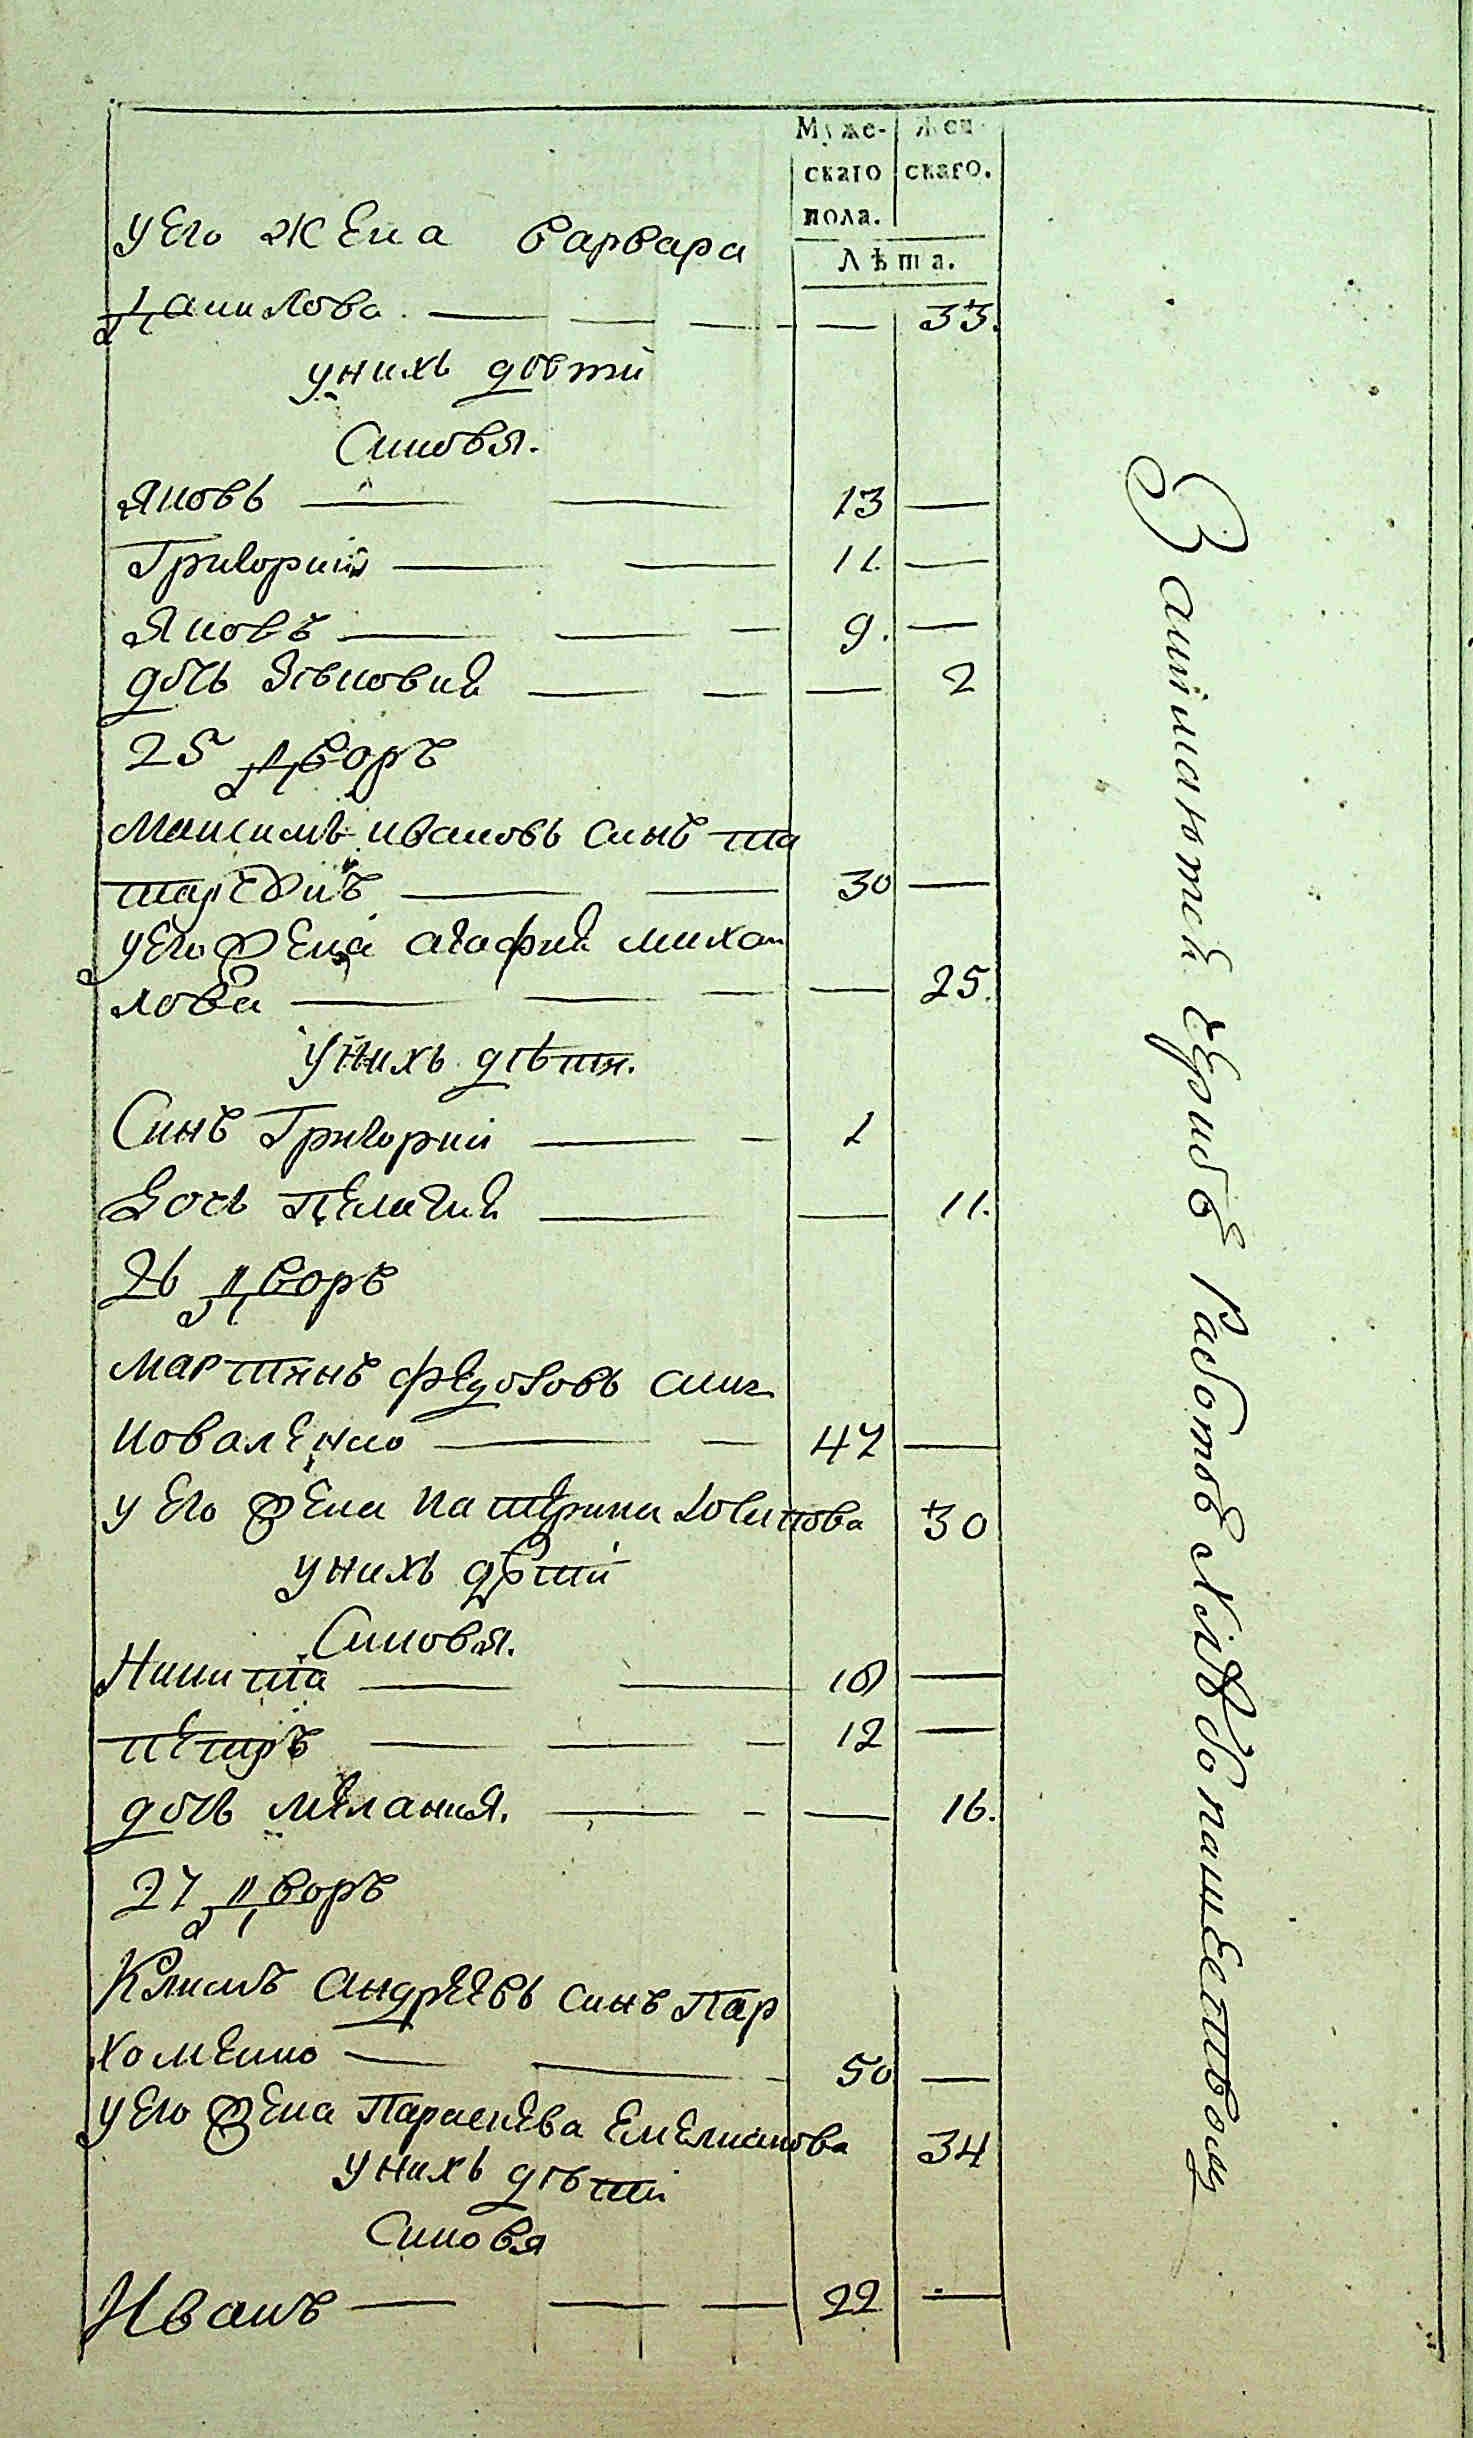 Муже-
скаго
пола.
Жен-
скаго.
Лѣта.
у Его жена варвара
Данилова 33.
унихъ дѣти
Синовя.
Яковъ 13
Григорий 11.
Яковъ 9.
дочь Зѣновия 2
25 Дворъ
Максимъ ивановъ синъ та
30
у Его жена агафия михаи
лова 25.
унихъ дѣти.
Синъ Григорий 1
Дочь Пелагия 11.
26 дворъ
Мартинъ федоровъ син
коваленко 47
у Его жена катерина 30
унихъ дѣти
Синовя.
Никита 18
петръ 12
дочь мелания. 16.
27 дворъ
Климъ андреевъ синъ Пар
хоменко 50
у Его жена Параскева Емелианова 34
унихъ дѣти
Синовя
Иванъ 22
работѣ хлѣбопашественой